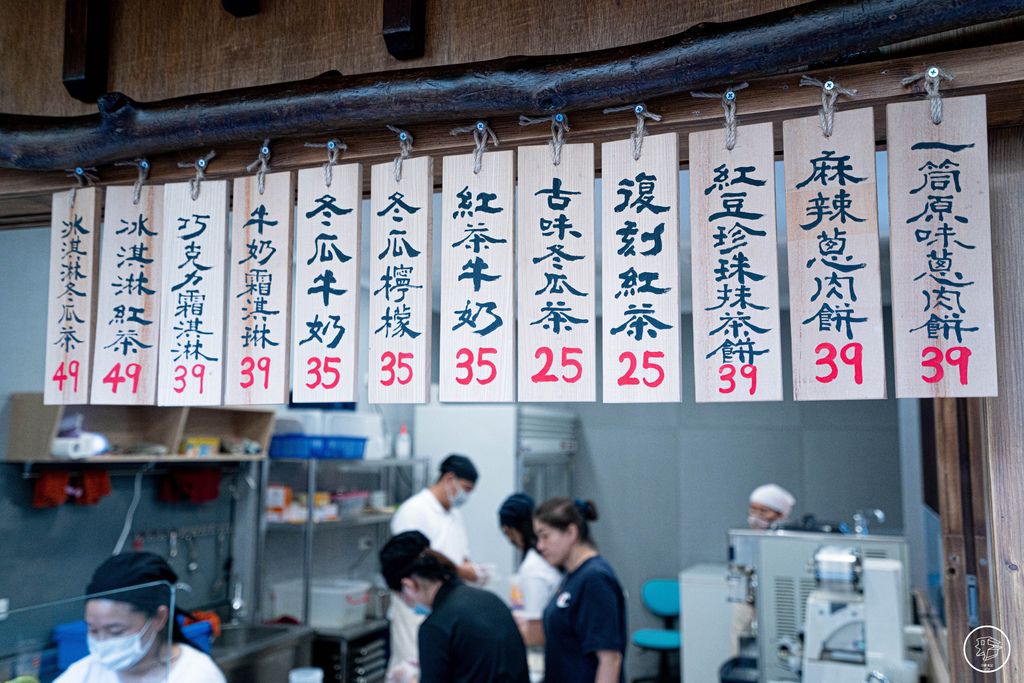 一筒原味蔥肉餅
39
麻辣蔥肉餅
39
紅豆珍珠抹茶餅
39
復刻紅茶
25
古味冬瓜茶
25
紅茶牛奶
35
冬瓜檸檬
35
冬瓜牛奶
35
牛奶霜淇琳
39
巧克力霜淇淋
39
冰淇淋紅茶
49
冰淇淋冬瓜茶
49